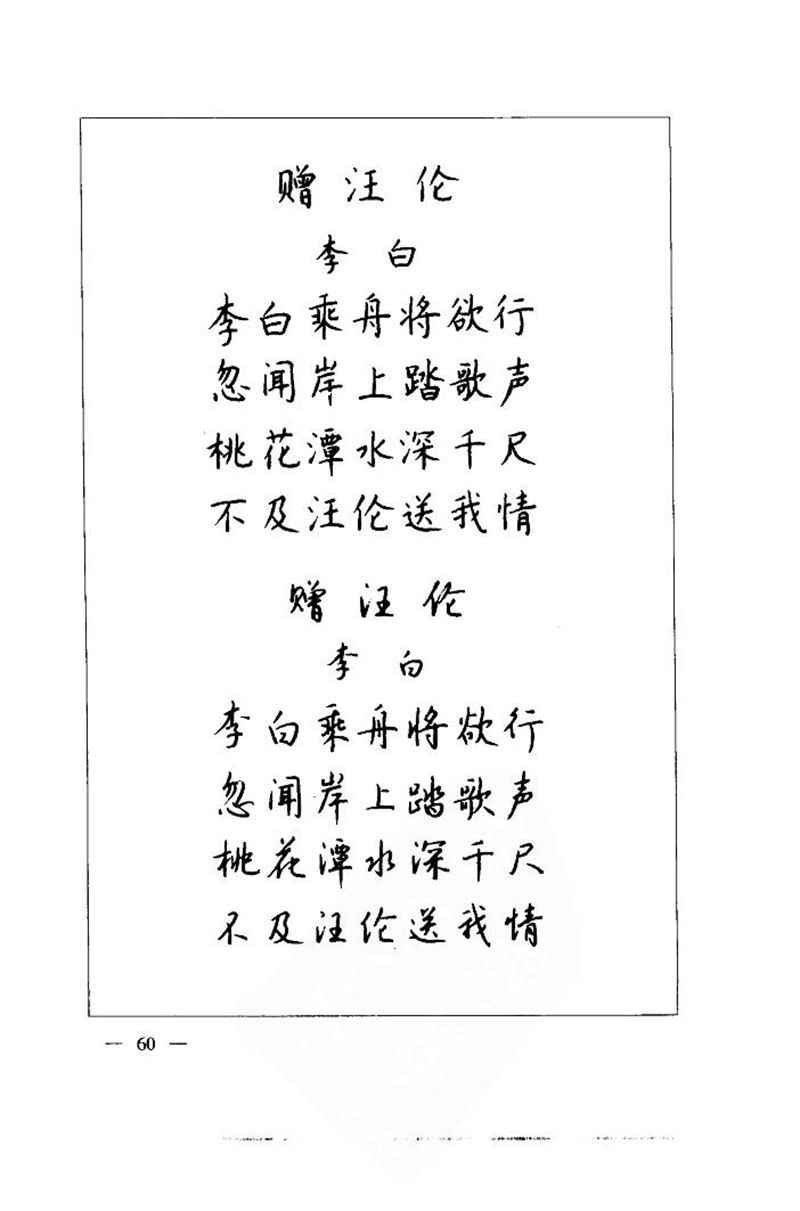 赠汪伦
李白
李白乘舟将欲行
忽闻岸上踏歌声
桃花潭水深千尺
不及汪伦送我情
赠汪伦
李白
李白乘舟将欲行
忽闻岸上踏歌声
桃花潭水深千尺
不及汪伦送我情
— 60 —